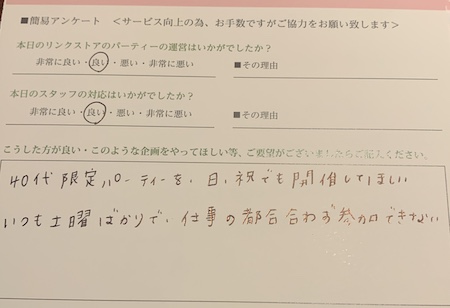 ■簡易アンケート <サービス向上の為、お手数ですがご協力をお願い致します>
本日のリンクストアのパーティーの運営はいかがでしたか?
非常に良い・良い・悪い・非常に悪い ■その理由
本日のスタッフの対応はいかがでしたか?
非常に良い・良い・悪い・非常に悪い ■その理由
こうした方が良い・このような企画をやってほしい等、ご要望がございましたらご記入ください。
40代限定パーティーを、日、祝でも開催してほしい
いつも土曜ばかりで、仕事の都合合わず参加できない